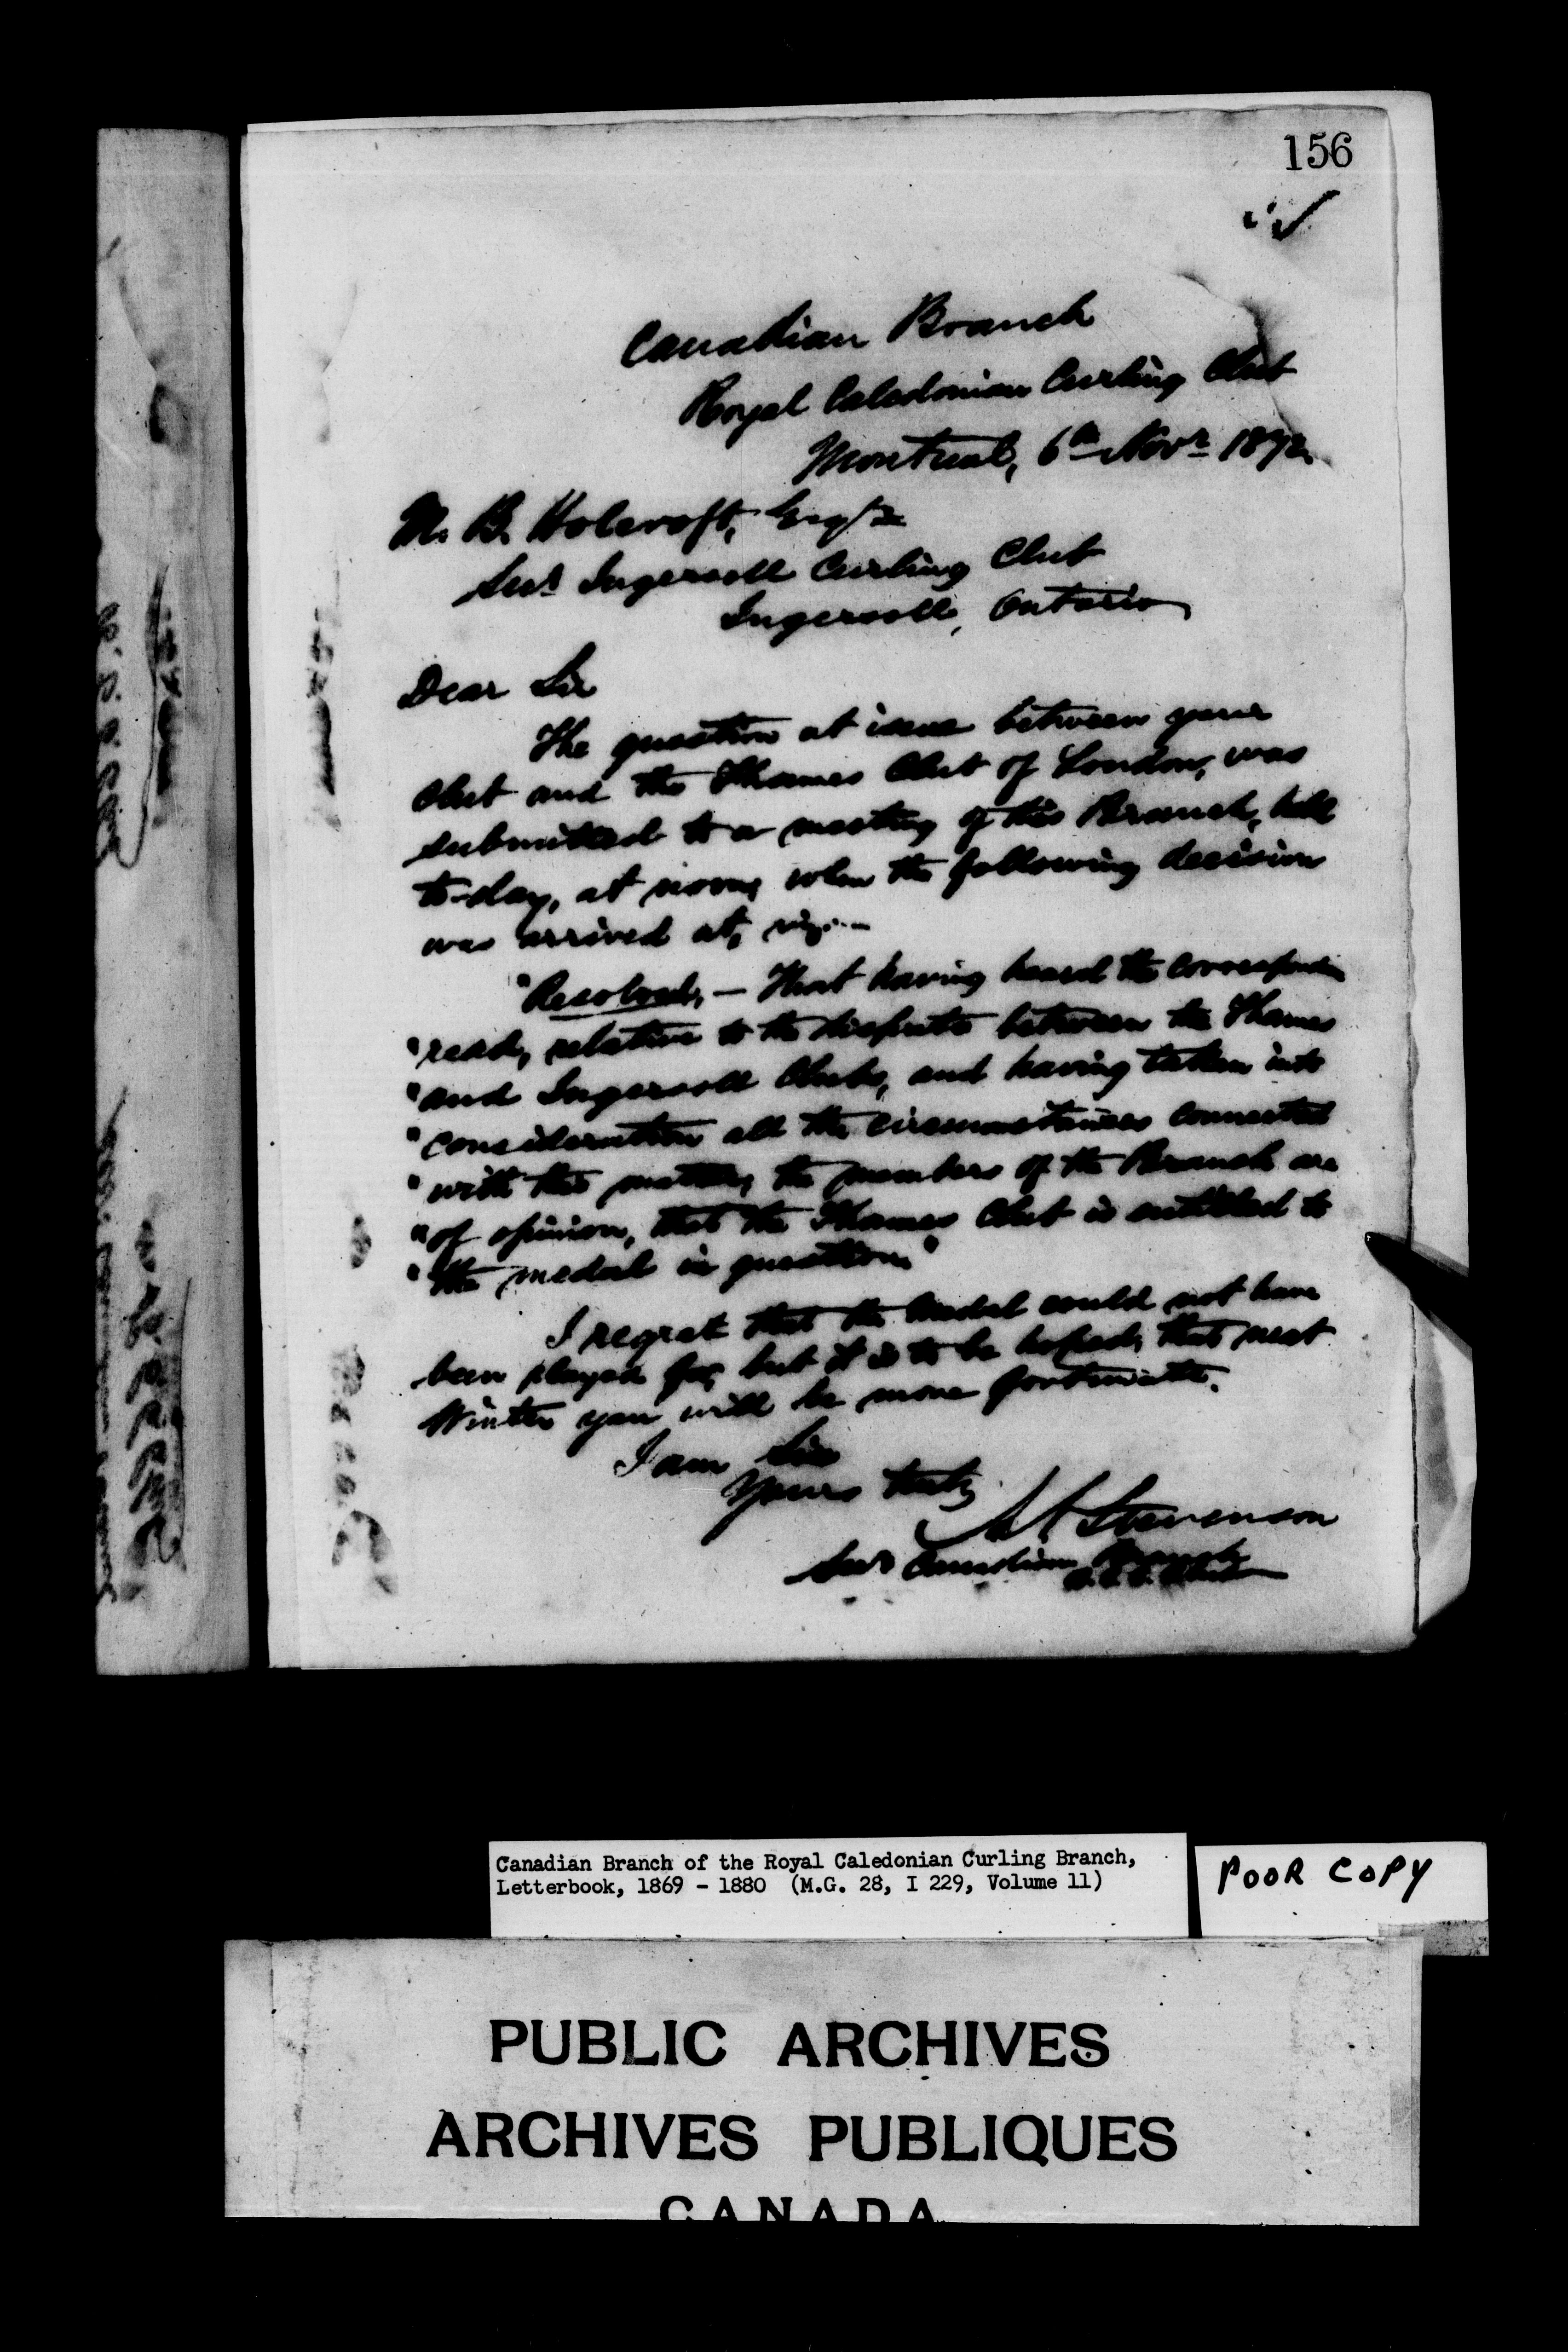 156
Canadian Branch
Royal Caledonian Curling Club
Montreal, 6th Novr 1872.
M. B. Holcroft, Esqre
Secy Ingersoll Curling Club
Ingersoll, Ontario
Dear Sir
The question at issue between your
Club and the Thames Club of London, was
submitted to a meeting of this Branch, held
to-day, at noon, when the following decision
was arrived at, viz:—
"Resolved, — That having heard the correspondence
"read, relative to the dispute between the Thames
"and Ingersoll Clubs, and having taken into
"consideration all the circumstances connected
"with the matter, the members of the Branch are
"of opinion, that the Thames Club is entitled to
"the medal in question."
I regret that the medal could not have
been played for, but it is to be hoped, that next
Winter you will be more fortunate.
I am Sir
Yours truly
Stevenson
Secy Canadian Branch
R. C. C. Club
Canadian Branch of the Royal Caledonian Curling Branch,
Letterbook, 1869 - 1880 (M.G. 28, I 229, Volume 11)
POOR COPY
PUBLIC ARCHIVES
ARCHIVES PUBLIQUES
CANADA